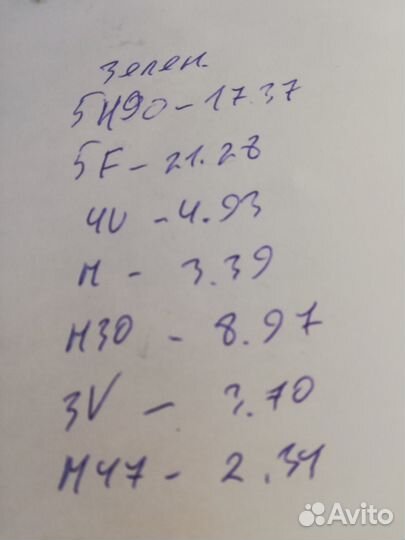 зелен.
5Н90 - 17.37
5F - 21.28
4U - 4.93
М - 3.39
М30 - 8.97
3V - 3.70
М47 - 2.34
Avito